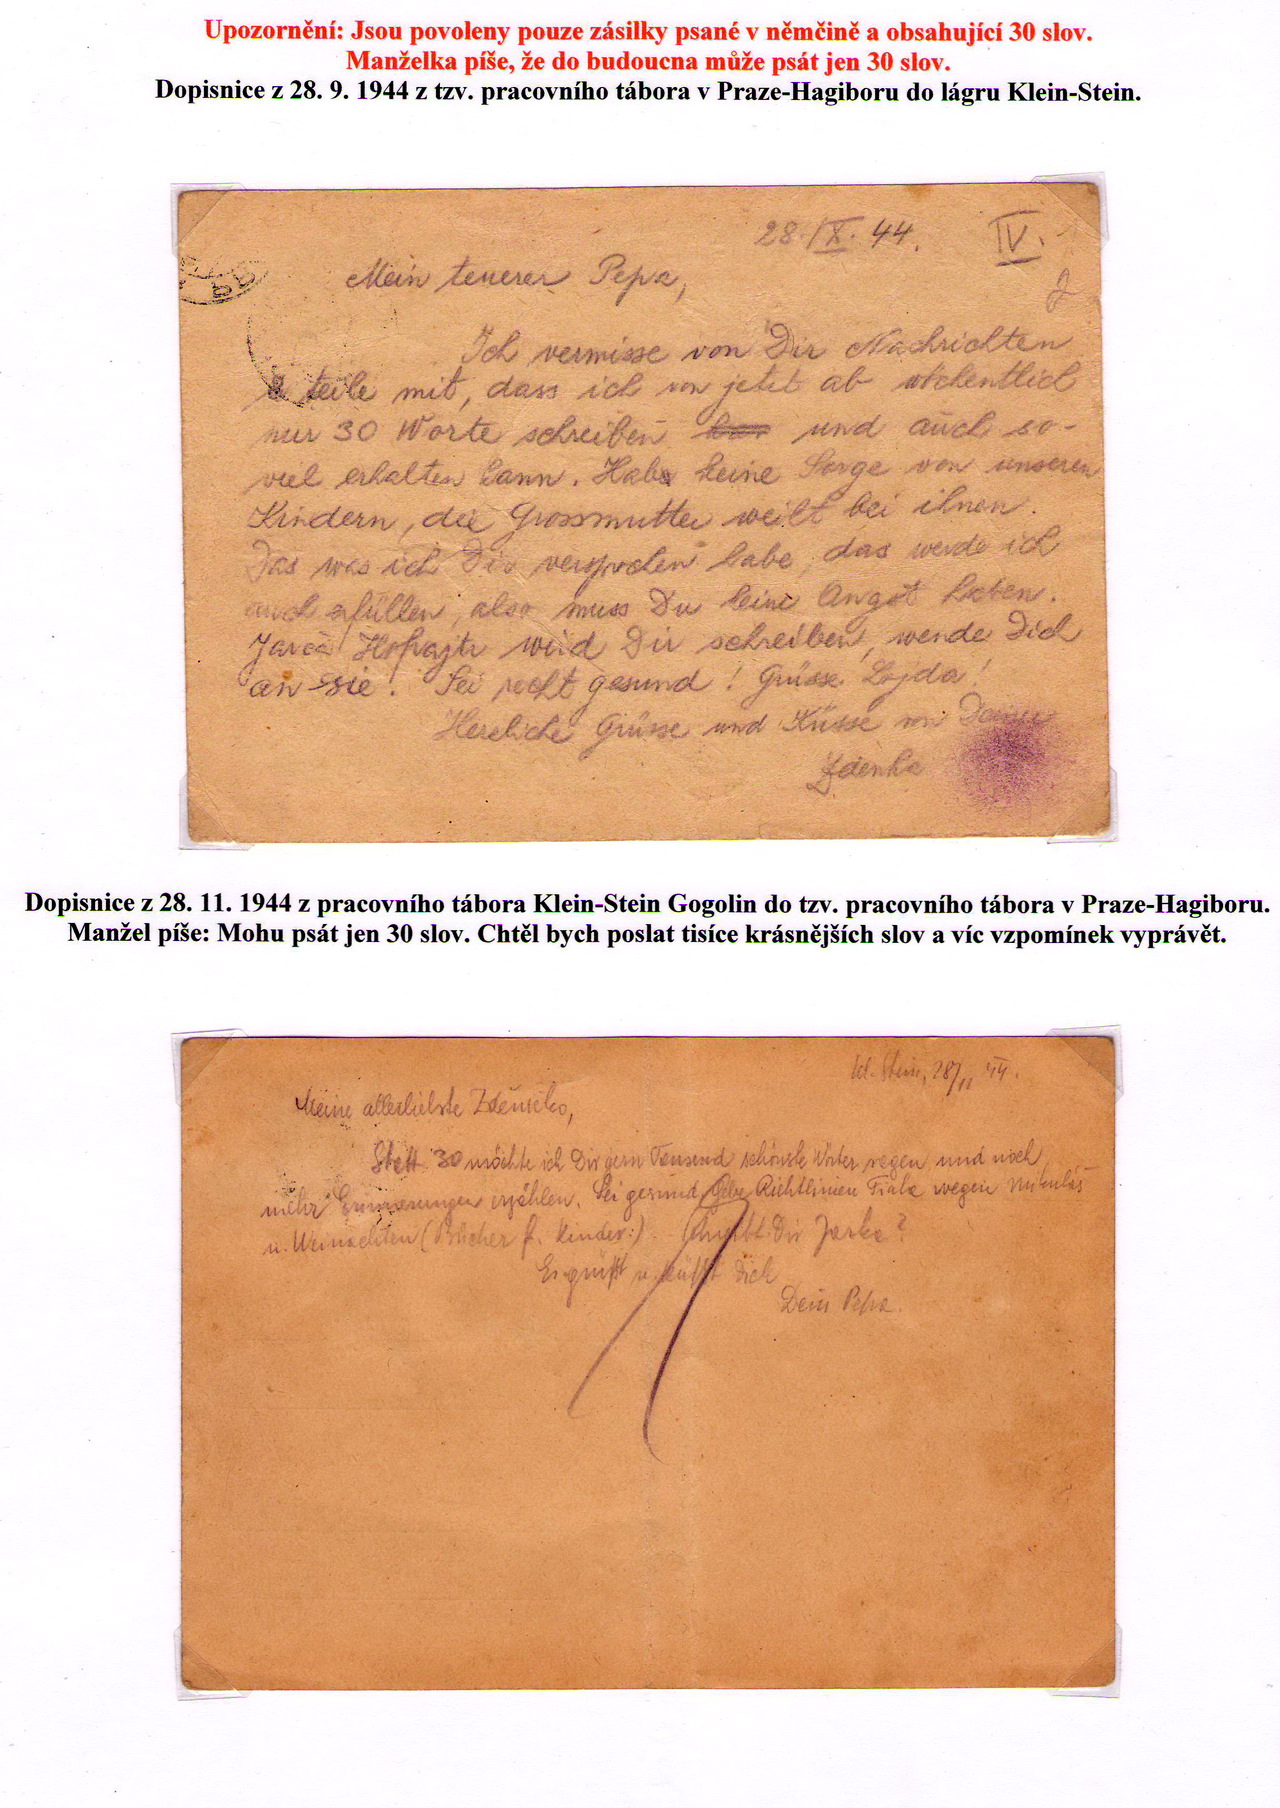 Upozornění: Jsou povoleny pouze zásilky psané v němčině a obsahující 30 slov.
Manželka píše, že do budoucna může psát jen 30 slov.
Dopisnice z 28. 9. 1944 z tzv. pracovního tábora v Praze-Hagiboru do lágru Klein-Stein.
28./IX. 44. IV.
Mein teuerer Pepa,
Ich vermisse von Dir Nachrichten
teile mit, dass ich von jetzt ab wöchentlich
nur 30 Worte schreiben und auch so-
viel erhalten kann. Habe keine Sorge von unseren
Kindern, die Grossmutter weilt bei ihnen.
Das was ich Dir versprochen habe, das werde ich
auch erfüllen, also muss Du keine Angst haben.
Jarča wird Dir schreiben, wende Dich
an sie! Sei recht gesund! Grüsse Lojda!
Herzliche Grüsse und Küsse von Deine
Zdenka
Dopisnice z 28. 11. 1944 z pracovního tábora Klein-Stein Gogolin do tzv. pracovního tábora v Praze-Hagiboru.
Manžel píše: Mohu psát jen 30 slov. Chtěl bych poslat tisíce krásnějších slov a víc vzpomínek vyprávět.
Kl-Stein, 28/11 44.
Meine allerliebste Zděničko,
Statt 30 möchte ich Dir gern Tausend schönste Wörter und noch
mehr Erinnerungen erzählen. Sei gesund Gebe Richtlinien Fiala wegen Mikuláš
u. Weinachten (Bücher f. Kinder.) Schreibt Dir Jarka?
Es grüßt u. küßt Dich
Dein Pepa.